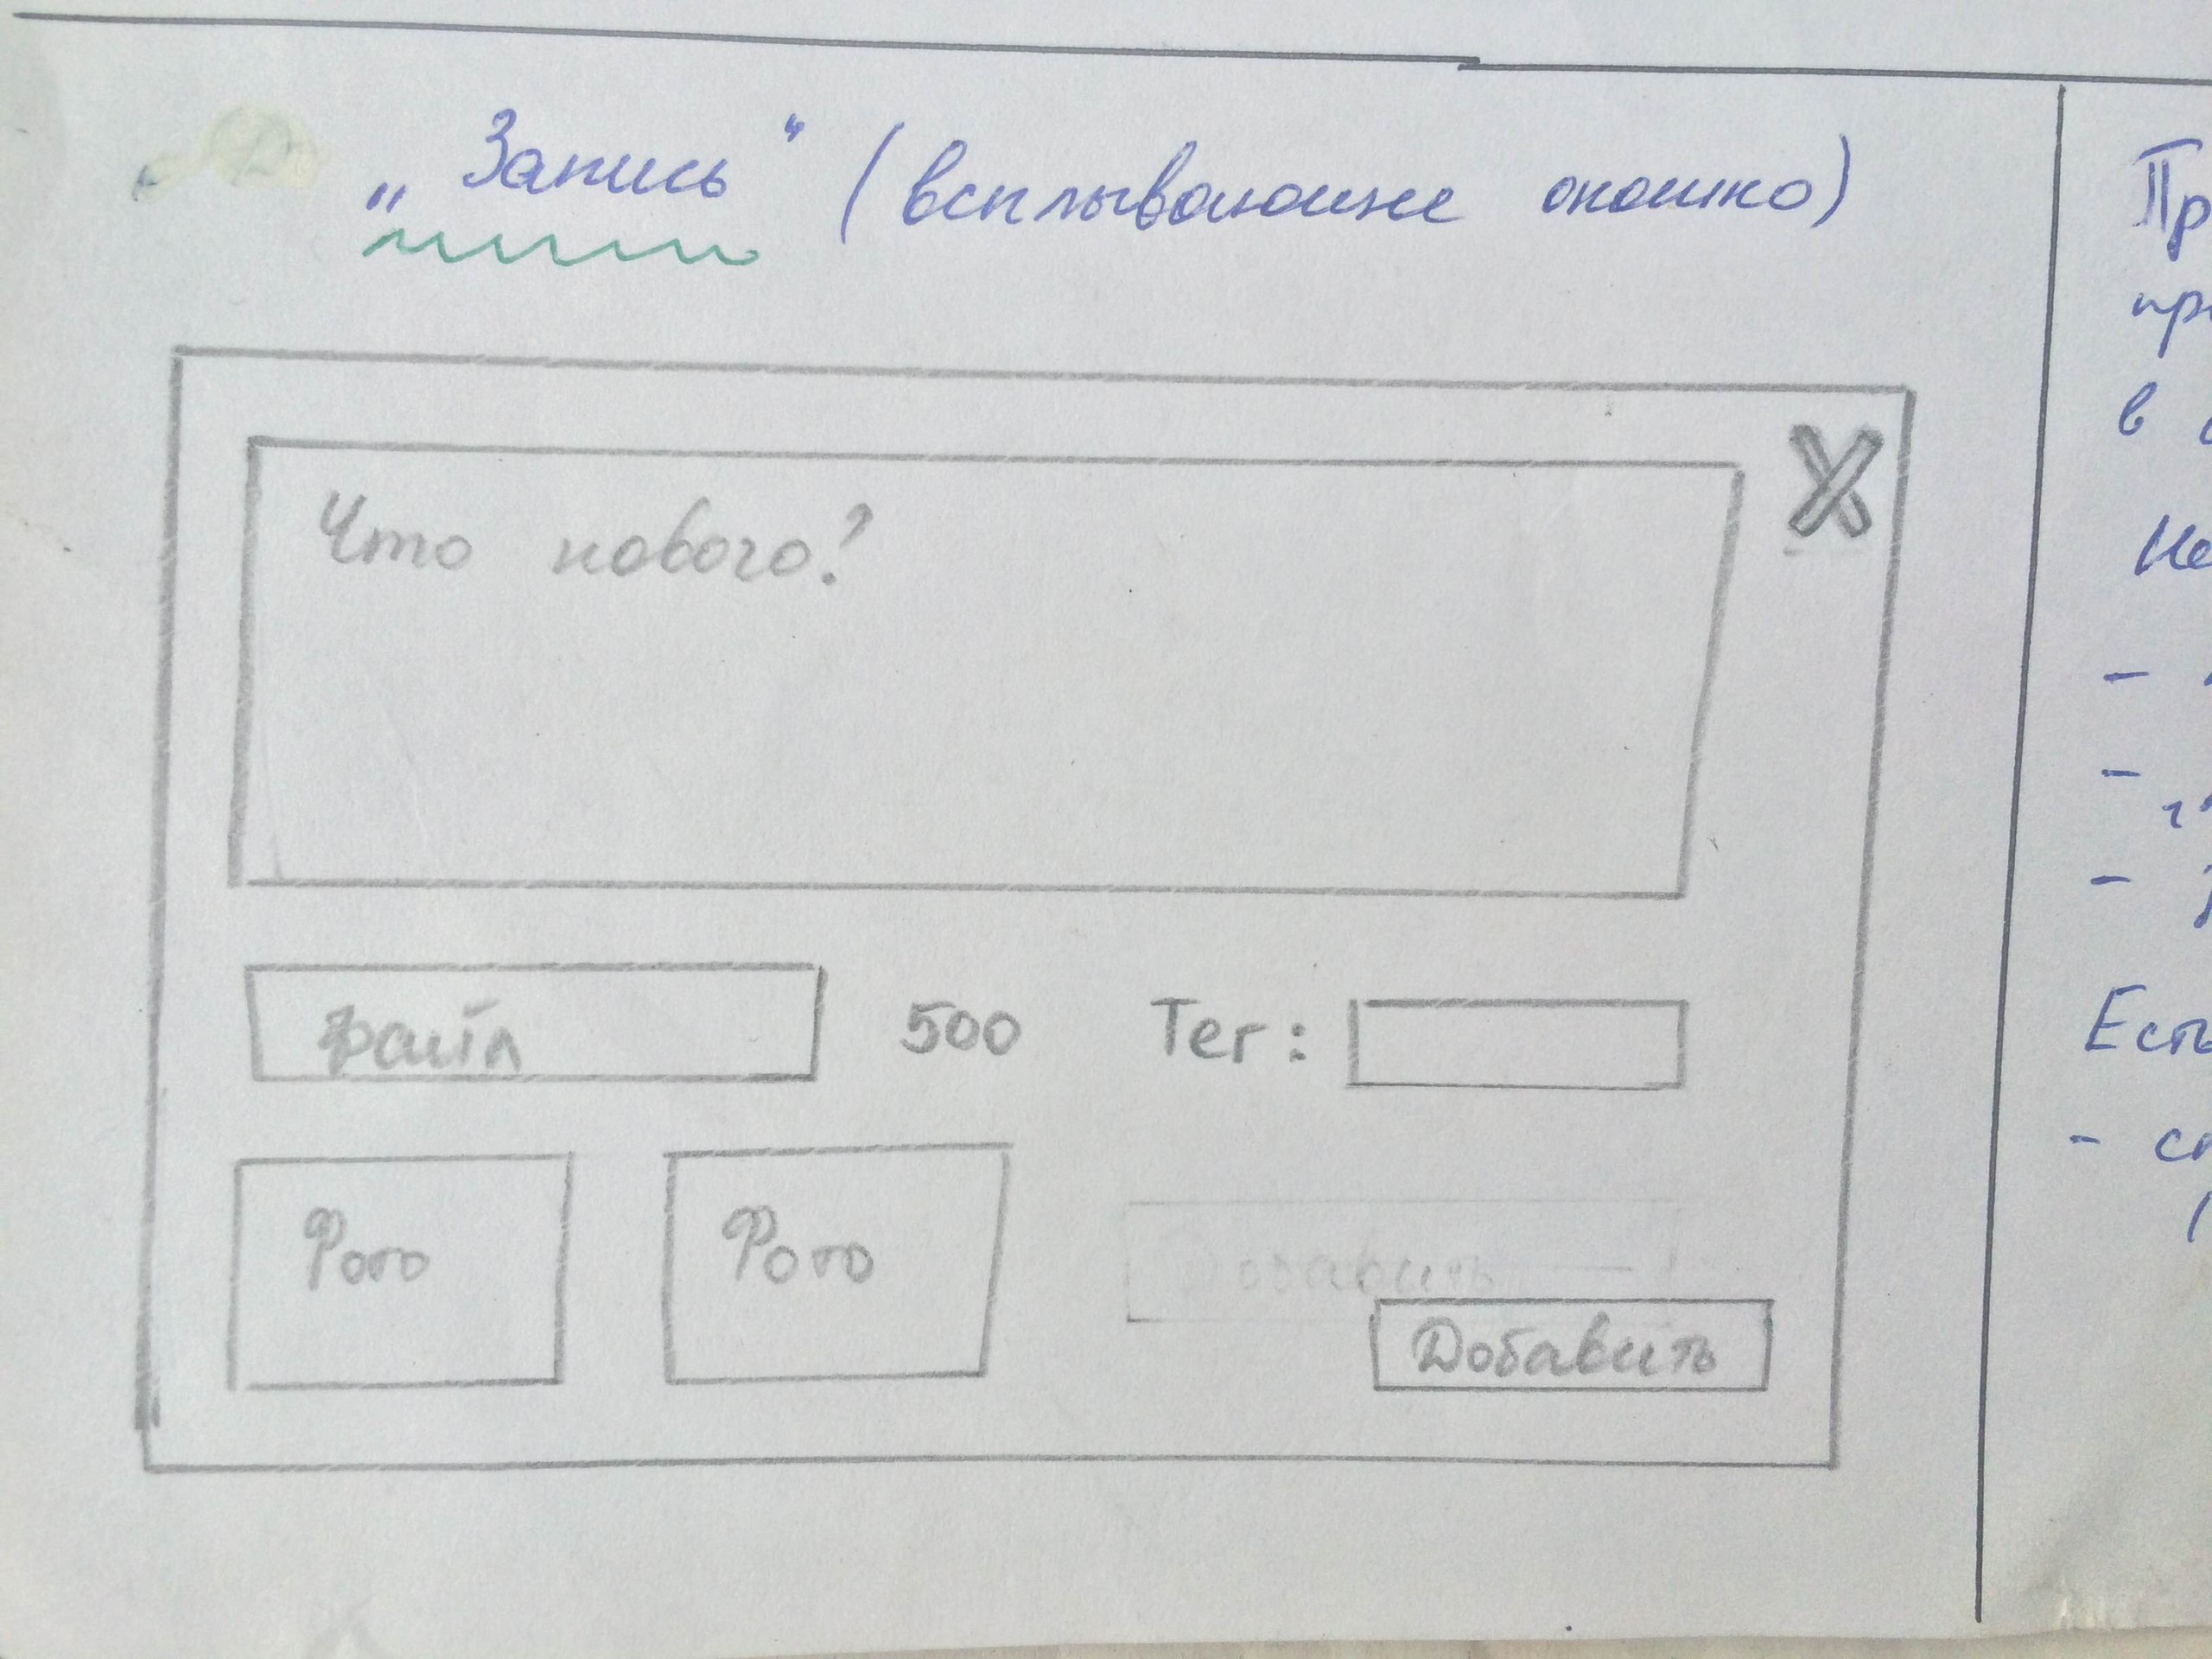 „Запись“ (всплывающее окошко)
Что нового?
X
файл 500 Тег:
Фото Фото
Добавить
Добавить
Пр
пр
в
Не
-
-
-
Есть
- сп
(